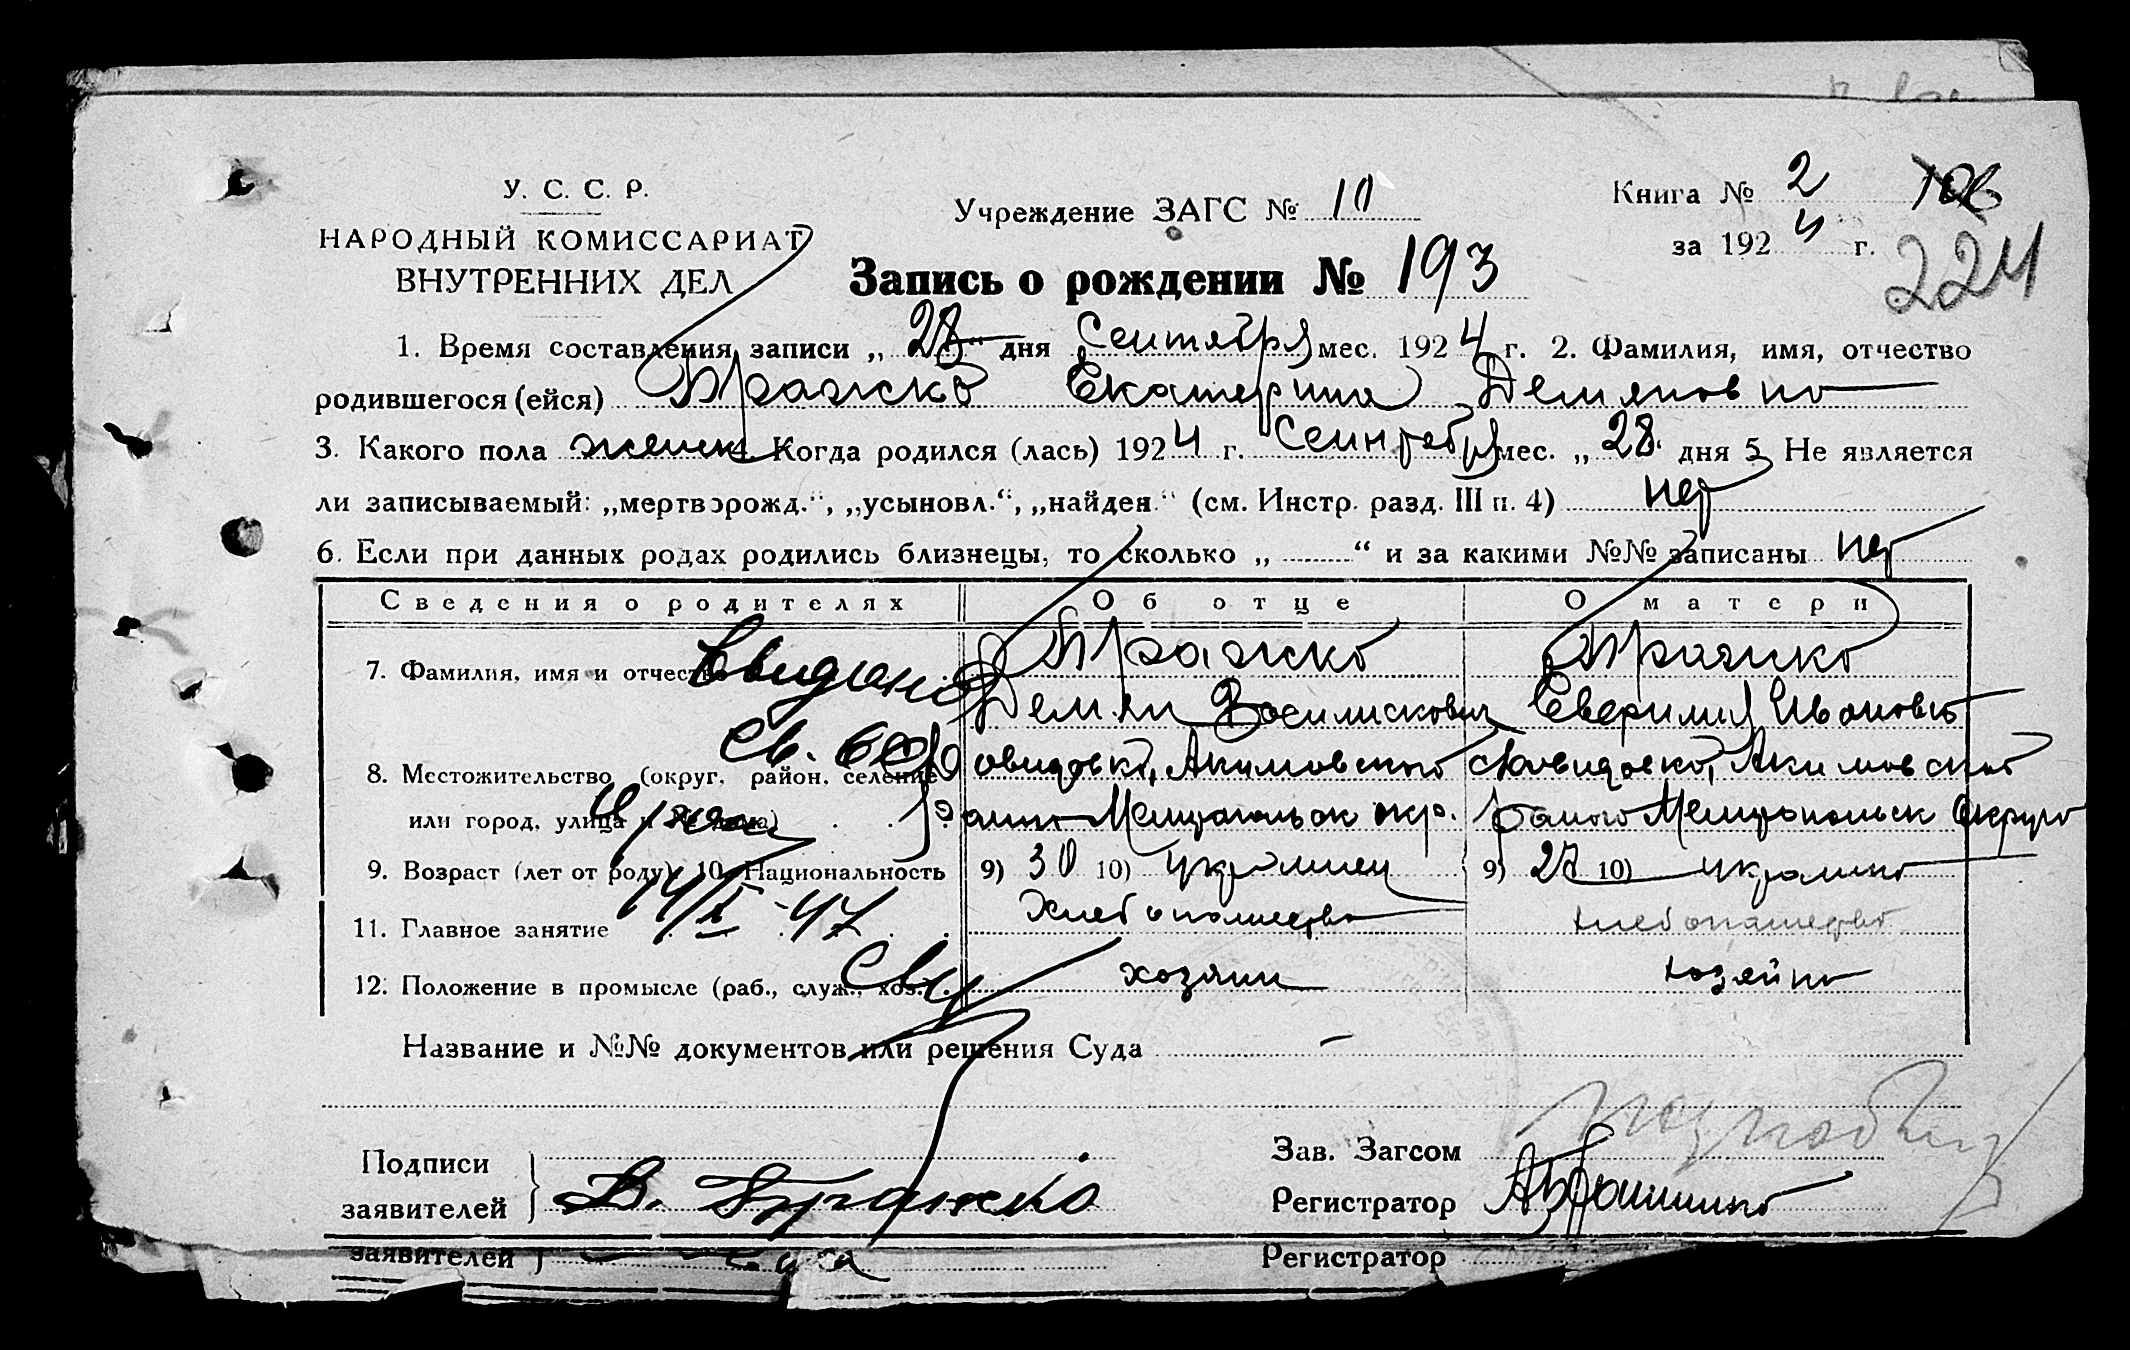 У. С. С. Р.
НАРОДНЫЙ КОМИССАРИАТ
ВНУТРЕННИХ ДЕЛ
Учреждение ЗАГС № 10
Книга № 2
за 1924 г.
224
Запись о рождении № 193
1. Время составления записи „28“ дня Сентября мес. 1924 г. 2. Фамилия, имя, отчество
родившегося (ейся) Бражко Екатерина Демяновно
3. Какого пола женск 4. Когда родился (лась) 1924 г. Сентября мес. „28. дня 5. Не является
ли записываемый: „мертворожд.“, „усыновл.“, „найден.“ (см. Инстр. разд. III п. 4) нет
6. Если при данных родах родились близнецы, то сколько „ “ и за какими №№ записаны нет
Сведения о родителях Об отце О матери
7. Фамилия, имя и отчество Бражко Бражко
Демян Ивоновно
8. Местожительство (округ, район, селение Акимовского Акимовского
или город, улица и № дома) Мелитопольск окр. Мелитопольск Округо
9. Возраст (лет от роду) 10. Национальность 9) 30 10) украинец 9) 27 10) украинко
14/X-47
11. Главное занятие Хлебопашество хлебопашество
12. Положение в промысле (раб., служ., хоз.) хозяин хозяйко
Название и №№ документов или решения Суда —
Подписи
заявителей
Бражко
Зав. Загсом
Регистратор
заявителей
Регистратор